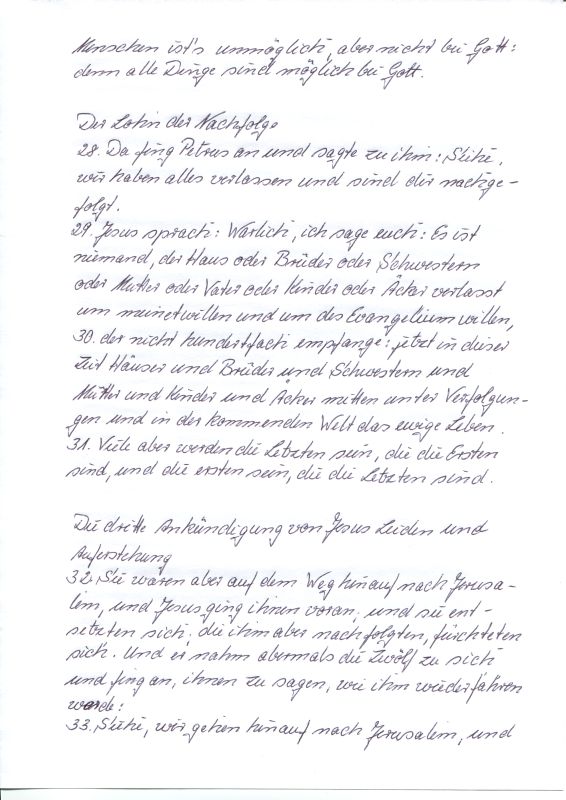 Menschen ist's unmöglich, aber nicht bei Gott:
denn alle Dinge sind möglich bei Gott.
Der Lohn der Nachfolge
28. Da fing Petrus an und sagte zu ihm: Siehe,
wir haben alles verlassen und sind dir nachge-
folgt.
29. Jesus sprach: Warlich, ich sage euch: Es ist
niemand, der Haus oder Brüder oder Schwestern
oder Mutter oder Vater oder Kinder oder Äcker verlasst
um meinetwillen und um des Evangelium willen,
30. der nicht hundertfach empfange: jetzt in dieser
Zeit Häuser und Brüder und Schwestern und
Mütter und Kinder und Äcker mitten unter Verfolgun-
gen und in der kommenden Welt das ewige Leben.
31. Viele aber werden die Letzten sein, die die Ersten
sind, und die ersten sein, die die Letzten sind.
Die dritte Ankündigung von Jesus Leiden und
Auferstehung
32. Sie waren aber auf dem Weg hinauf nach Jerusa-
lem, und Jesus ging ihnen voran; und sie ent-
setzten sich; die ihm aber nachfolgten, fürchteten
sich. Und er nahm abermals die Zwölf zu sich
und fing an, ihnen zu sagen, wie ihm wiederfahren
werde:
33. Siehe, wir gehen hinauf nach Jerusalem, und